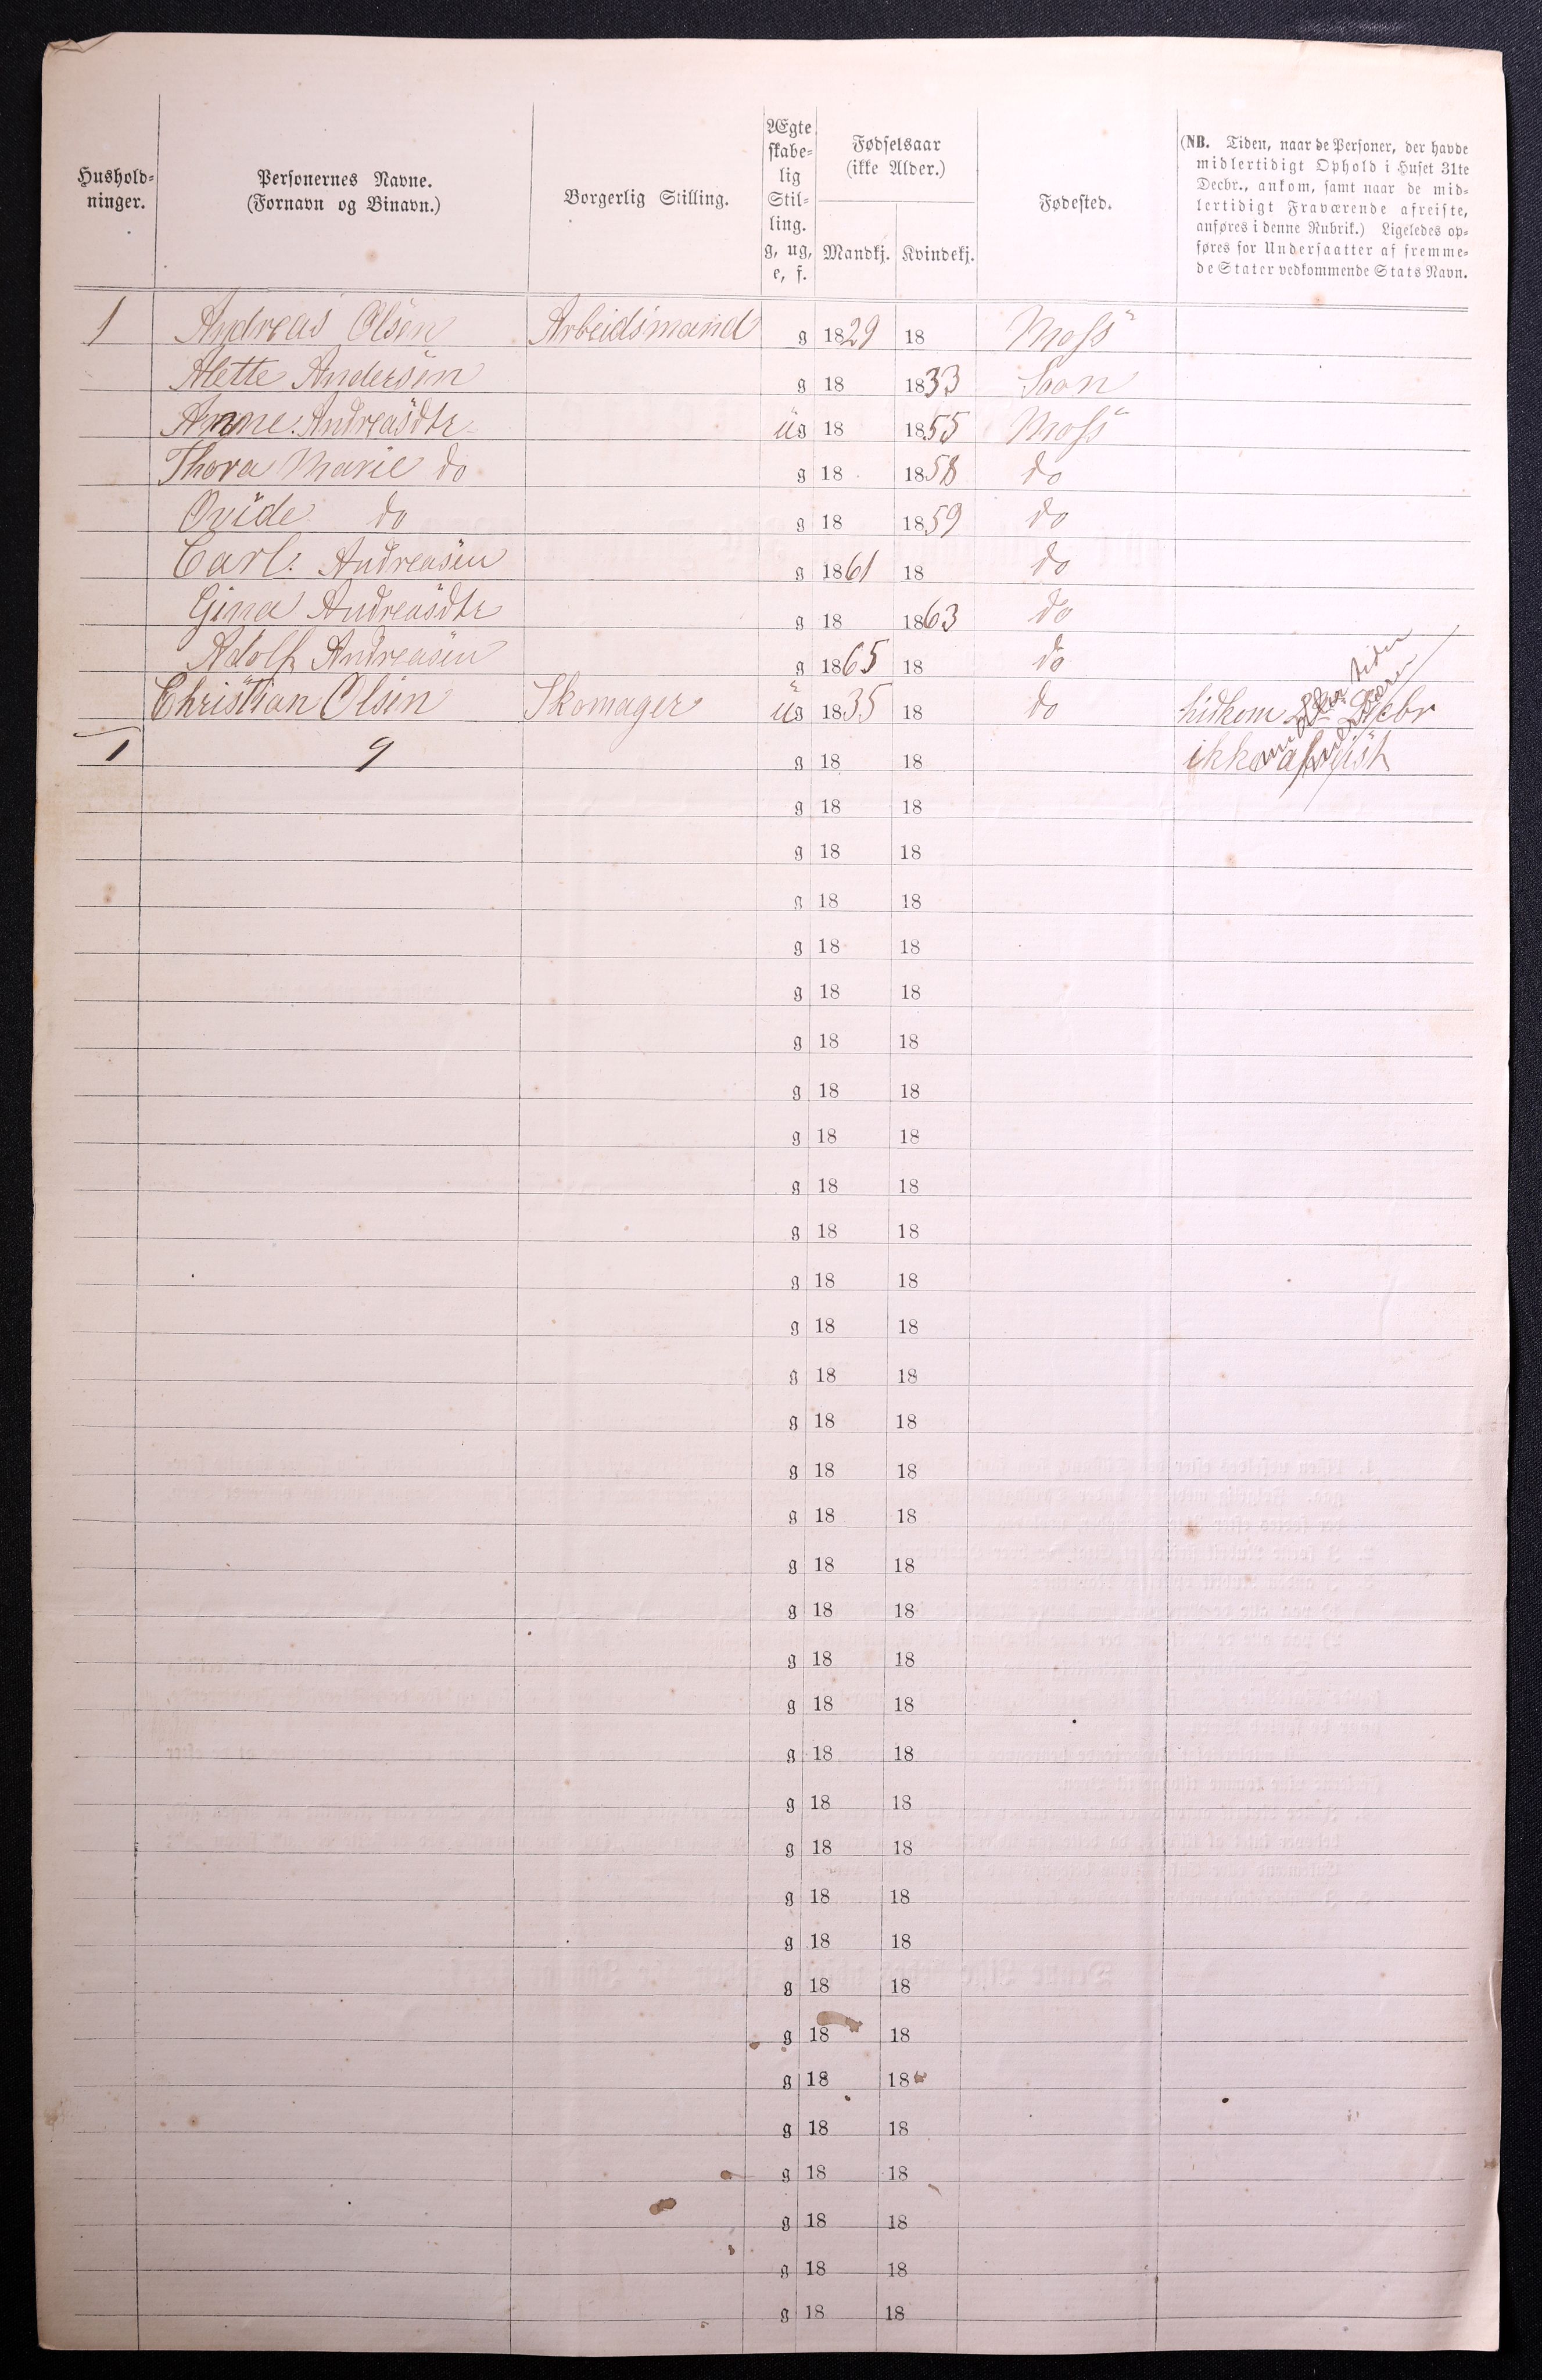 Hushold-
ninger.
Personernes Navne.
(Fornavn og Binavn.)
Borgerlig Stilling.
Ægte
skabe-
lig
Stil-
ling.
g, ug,
e, f.
Fødselsaar
(ikke Alder.)
Mandkj. Kvindekj.
Fødested.
(NB. Tiden, naar de Personer, der havde
midlertidigt Ophold i Huset 31te
Decbr., ankom, samt naar de mid-
lertidigt Fraværende afreiste,
anføres i denne Rubrik.) Ligeledes op-
føres for Undersaatter af fremme-
de Stater vedkommende Stats Navn.
1 Andreas Olsen Arbeidsmand g 1829 18 Moss
Alette Andersen g 18 1833 Soon
Anne Andreasdtr ug 18 1855 Moss
Thora Marie do g 18 1858 do
Ovide do g 18 1859 do
Carl Andreasen g 1861 18 do
Gina Andreasdtr g 18 1863 do
Adolf Andreasen g 1865 18 do
Christian Olsen Skomager ug 1835 18 do hidkom Decbr
1 9 g 18 18 ikke afreist
g 18 18
g 18 18
g 18 18
g 18 18
g 18 18
g 18 18
g 18 18
g 18 18
g 18 18
g 18 18
g 18 18
g 18 18
g 18 18
g 18 18
g 18 18
g 18 18
g 18 18
g 18 18
g 18 18
g 18 18
g 18 18
g 18 18
g 18 18
g 18 18
g 18 18
g 18 18
g 18 18
g 18 18
g 18 18
g 18 18
g 18 18
g 18 18
g 18 18